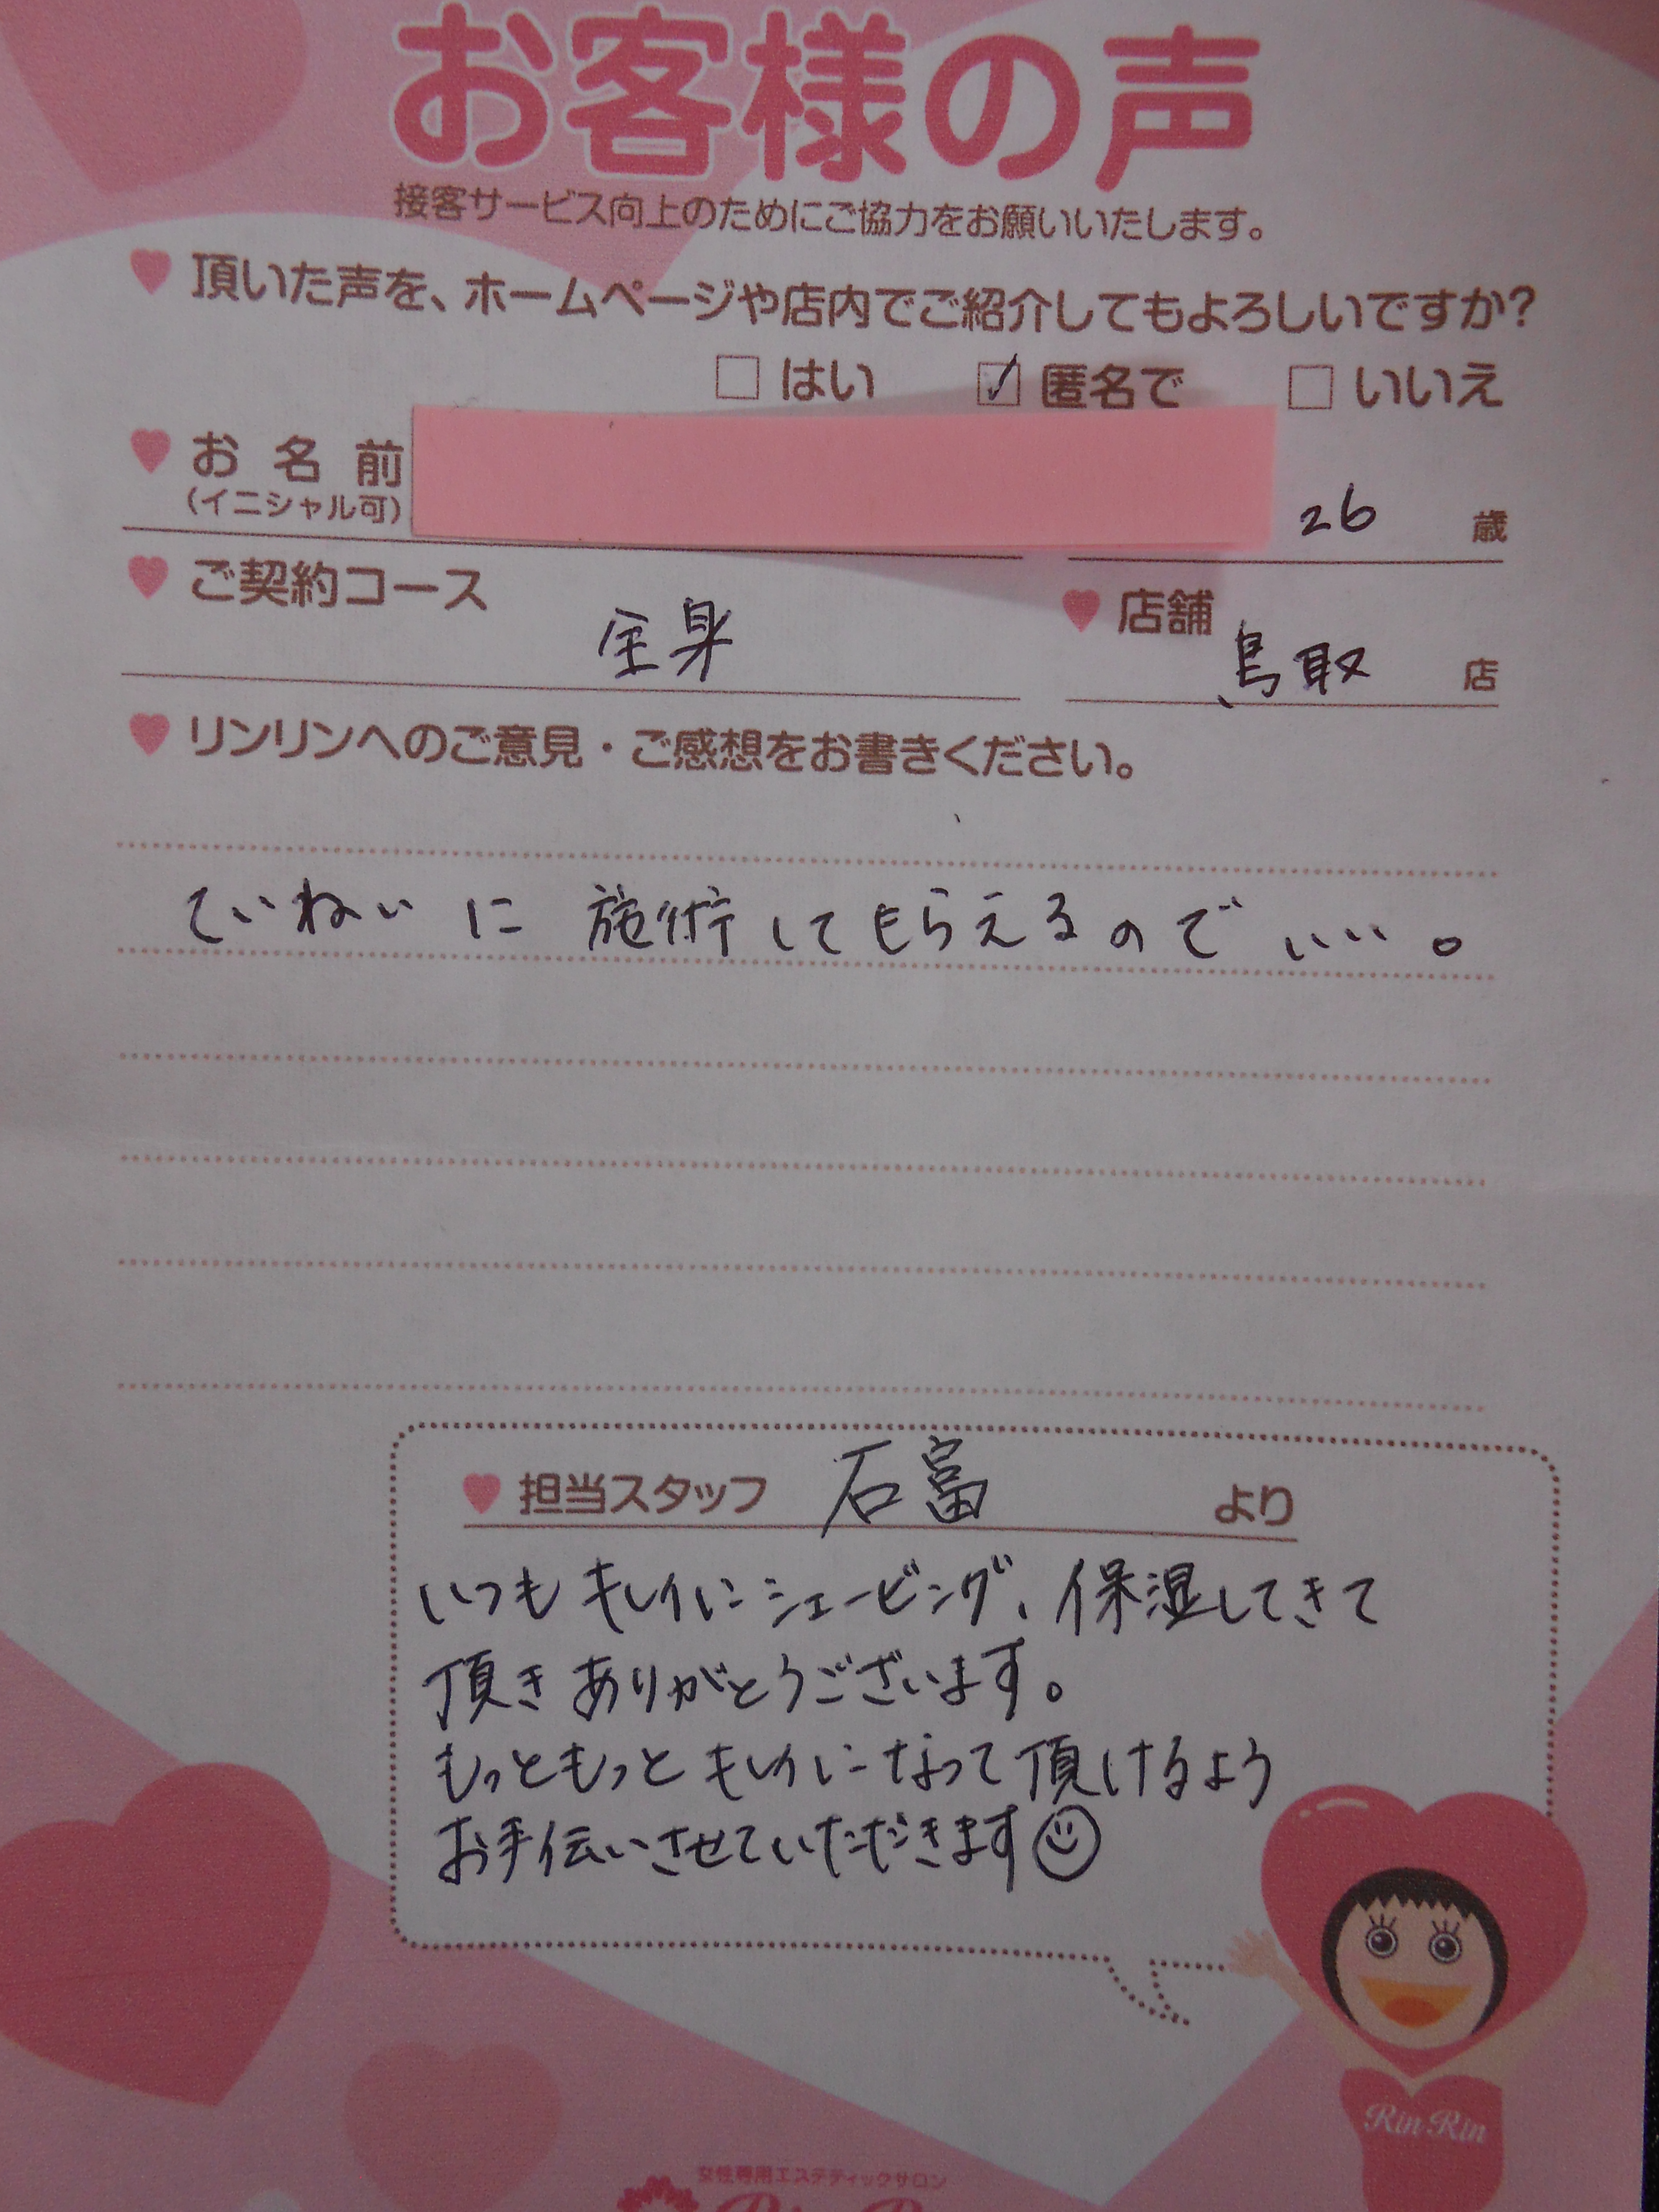 お客様の声
接客サービス向上のためにご協力をお願いいたします。
頂いた声を、ホームページや店内でご紹介してもよろしいですか？
はい 匿名で いいえ
お名前
(イニシャル可)
26 歳
ご契約コース 全身
店舗 鳥取 店
リンリンへのご意見・ご感想をお書きください。
ていねいに施術してもらえるのでいい。
担当スタッフ 石富 より
いつもキレイにシェービング、保湿してきて
頂きありがとうございます。
もっともっとキレイになって頂けるよう
お手伝いさせていただきます
Rin Rin
女性専用エステティックサロン